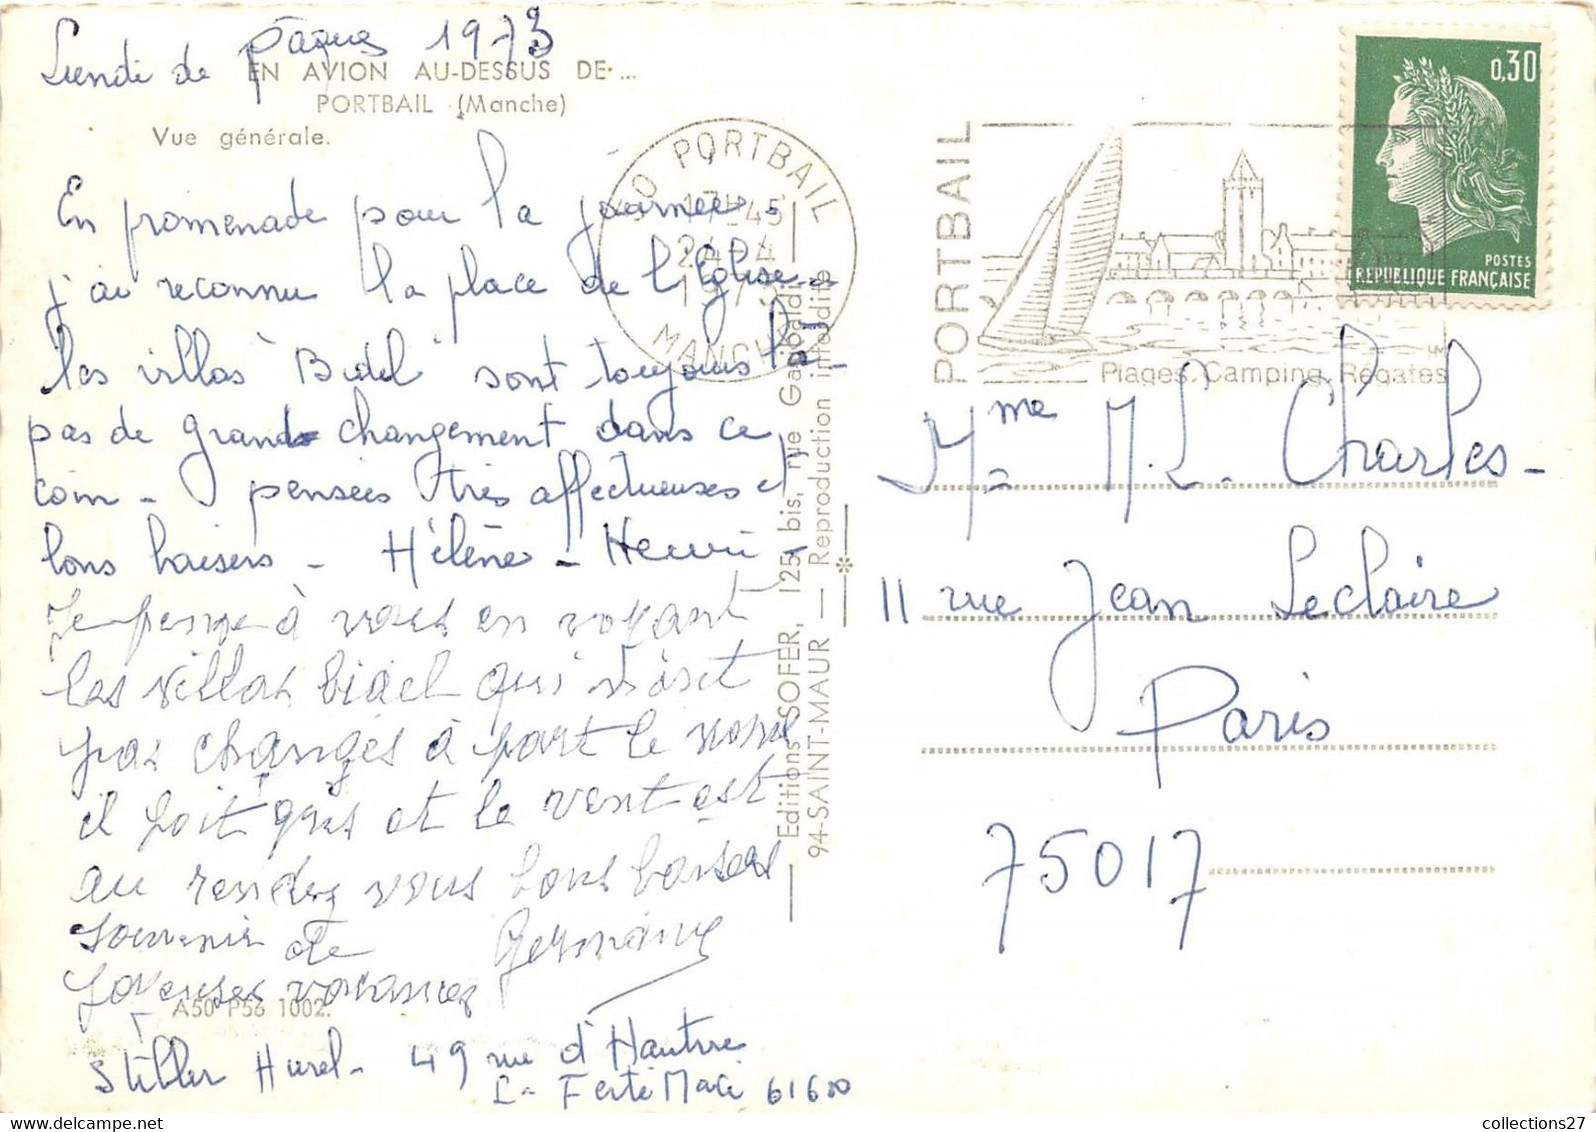 Lundi de Pâques 1973
EN AVION AU-DESSUS DE ...
PORTBAIL (Manche)
Vue générale.
En promenade pour la journée,
j'ai reconnu la place de l'Eglise -
les villas "Bidel" sont toujours là -
pas de grands changement dans ce
coin - pensées très affectueuses et
bons baisers - Hélène - Henri
Je pense à vous en voyant
les villas bidel qui
pas changés à part le nom
il fait gris et le vent est
au rendez vous bons baisers
souvenir de Germaine
joyeuses vacances
A50 P56 1002.
Hurel - 49 rue d'Hautvie
La Ferté Macé 61600
Editions SOFER, 125 bis, rue Garibaldi
94-SAINT-MAUR — Reproduction interdite
50 PORTBAIL
17H45
24-4
1973
MANCHE
PORTBAIL
PORTBAIL
Plages, Camping, Régates
0,30
POSTES
RÉPUBLIQUE FRANÇAISE
Mme M.L. Charles -
11 rue Jean Leclaire
Paris
75017
collections27